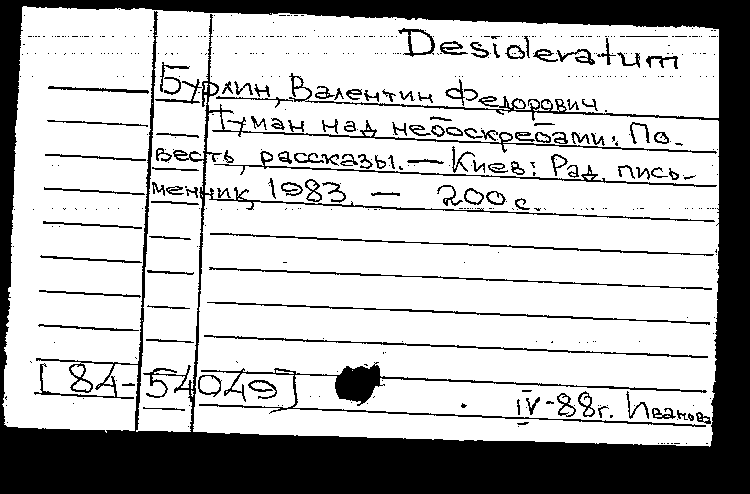 Desideratum
Бурлин, Валентин Федорович.
Туман над небоскребами: По-
весть, рассказы. — Киев: Рад. пись-
менник, 1983. — 200 с.
[84-54049]
IV-88г. Иванова